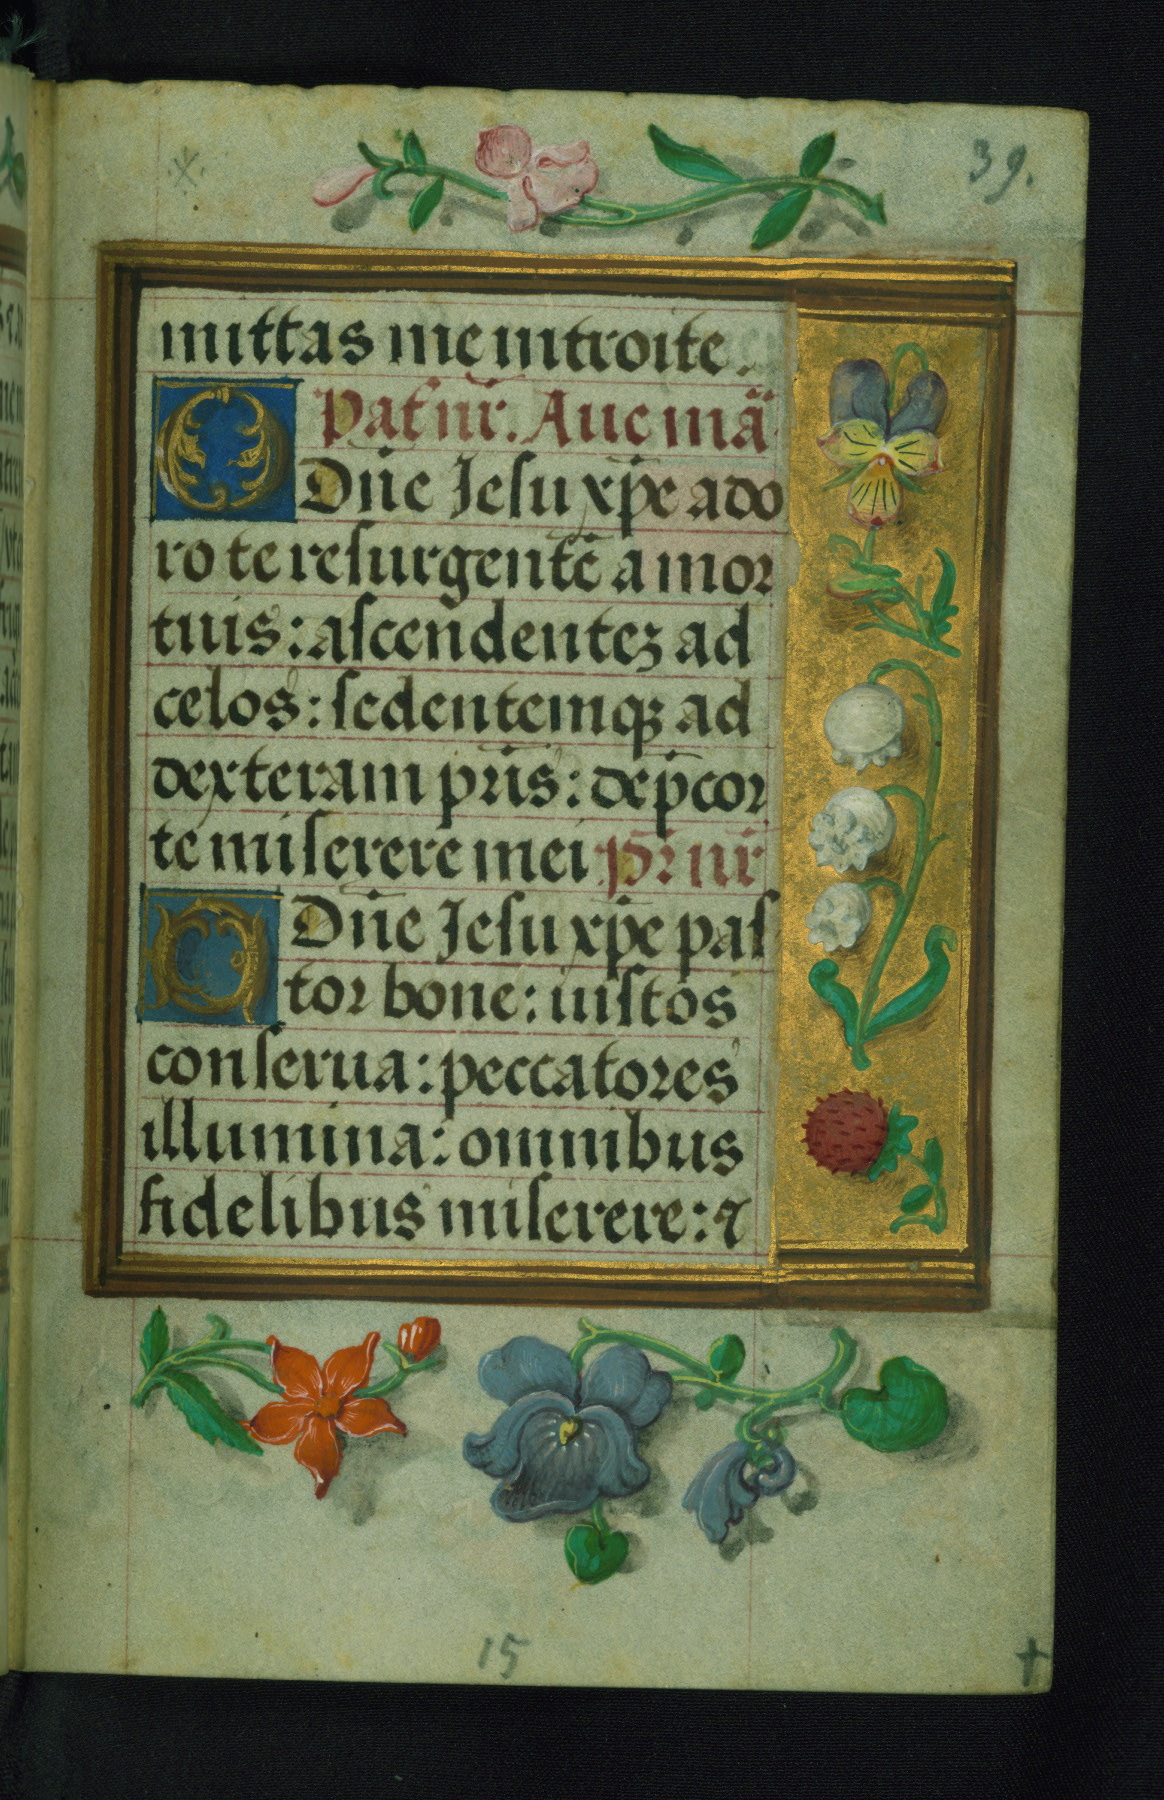 39.
mittas me introite.
Pat nr̄. Aue mā
Dn̄e Jesu xp̄e ado
ro te resurgentē a mor
tuis: ascendentez ad
celos: sedentemqꝫ ad
dexteram pr̄is: dep̄cor
te miserere mei pr̄ nr̄
Dn̄e Jesu xp̄e pas
tor bone: iustos
conserua: peccatores
illumina: omnibus
fidelibus miserere: ⁊
15